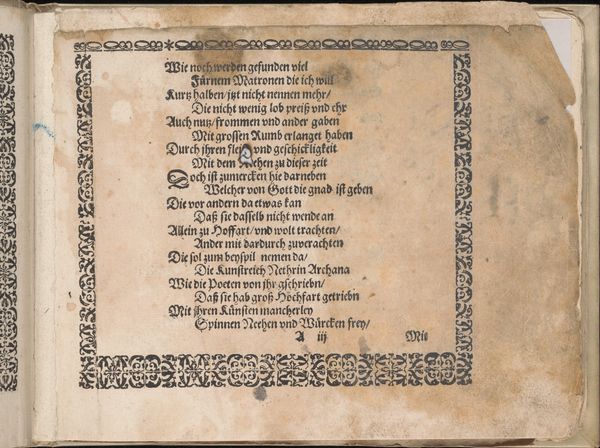 Wie noch werden gefunden viel
Fürnem Matronen die ich wil
Kurtz halben/jtzt nicht nennen mehr/
Die nicht wenig lob preiß vnd ehr
Auch nutz/frommen vnd ander gaben
Mit grossen Rumb erlanget haben
Durch jhren vnd geschickligkeit
Mit dem zu dieser zeit
Doch ist zumercken hie darneben
Welcher von Gott die gnad ist geben
Die vor andern da etwas kan
Daß sie dasselb nicht wende an
Allein zu Hoffart/vnd wolt trachten/
Ander mit dardurch zuverachten
Die sol zum beyspil nemen da/
Die Kunstreich Nethrin Archana
Wie die Poeten von jhr gschriebn/
Daß sie hab groß Hochfart getriebn
Mit jhren Künsten mancherley
Spinnen Neehen vnd Würcken frey/
A iij Mit